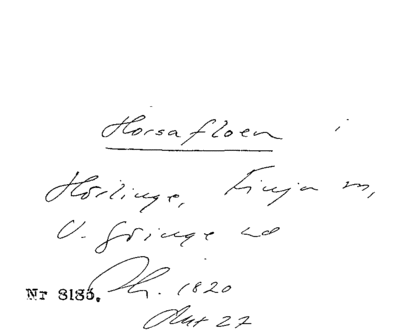 Horsafloen i
Hörlinge, Finja sn,
V. Göinge hd
Nr 8185. Th. 1820
Akt 27